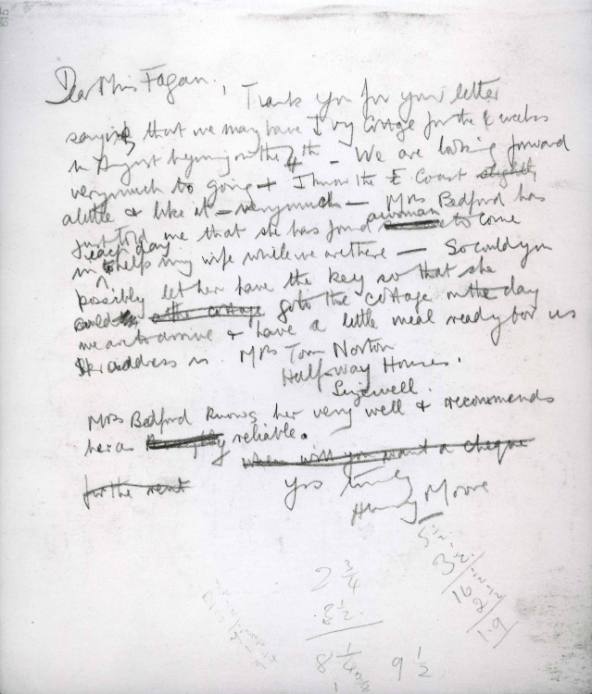 Dear Miss Fagan, Thank you for your letter
saying that we may have Ivy Cottage for the 2 weeks
in August beginning on the 4th – We are looking forward
very much to going & I know the E Coast slightly
a little & like it – very much – Mrs Bedford has
just told me that she has found a woman to come
in each day to help my wife while we are there — So could you
possibly let her have the key so that she
could the cottage go to the cottage on the day
we arrive & have a little meal ready for us
Her address is Mrs Tom Norton
Halfway Houses.
Sizewell.
Mrs Bedford knows her very well & recommends
her as reliable.
when will you want a cheque
for the rent
Yrs truly
Henry Moore
2 3/4
8 1/2
8 1/4
9 1/2
3 1/2
16
1.9